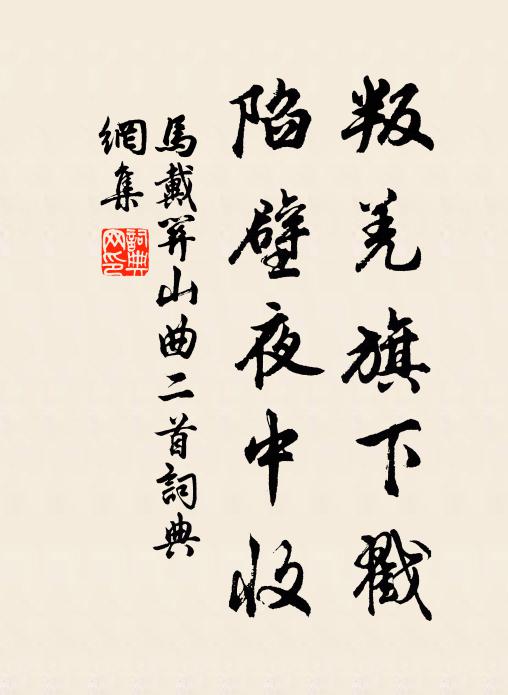 叛羌旗下戮
陷壁夜中收
馬戴關山曲二首詞典
網集
詞典
网印